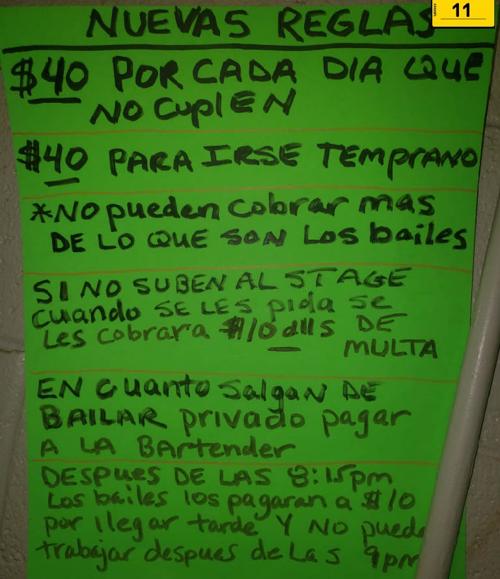 11
NUEVAS REGLAS
$40 POR CADA DIA QUE
NO CuplEN
$40 PARA IRSE TEMPRANO
*NO pueden cobrar mas
DE LO QUE SON Los bailes
SI NO SUBEN AL STAGE
cuando SE LES pida se
Les cobrara $10 dlls DE
MULTA
EN cuanto Salgan DE
BAILAR privado pagar
A LA BArtender
DESPUES DE LAS 8:15pm
Los bailes los pagaran a $10
por llegar tarde Y NO puede
trabajar despues de Las 9pm